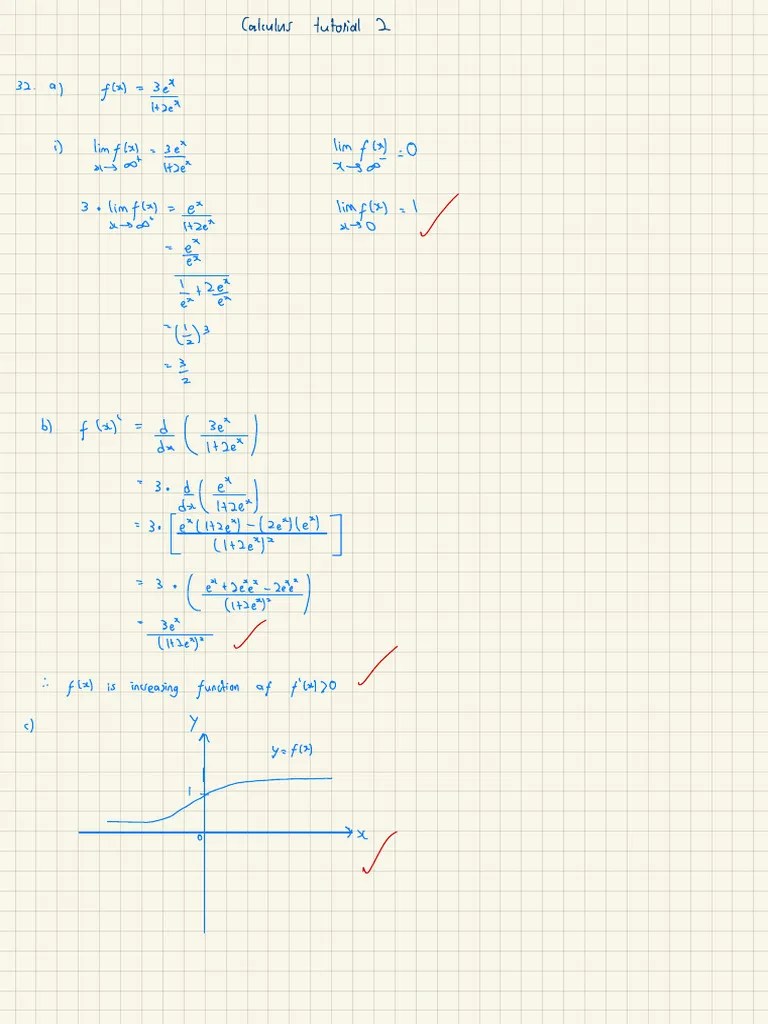 Calculus tutorial 2
32. a) f(x) = 3e^x/(1+2e^x)
i) lim x→∞⁺ f(x) = 3e^x/(1+2e^x)
3 • lim x→∞⁺ f(x) = e^x/(1+2e^x)
= (e^x/e^x)/(1/e^x + 2e^x/e^x)
= (1/2)3
= 3/2
lim x→∞⁻ f(x) = 0
lim x→0 f(x) = 1
b) f(x)' = d/dx (3e^x/(1+2e^x))
= 3 • d/dx (e^x/(1+2e^x))
= 3 • [(e^x(1+2e^x) − (2e^x)(e^x))/(1+2e^x)²]
= 3 • ((e^x + 2e^xe^x − 2e^xe^x)/(1+2e^x)²)
= 3e^x/(1+2e^x)²
∴ f(x) is increasing function af f'(x)>0
c)
Y
y = f(x)
1
0
x